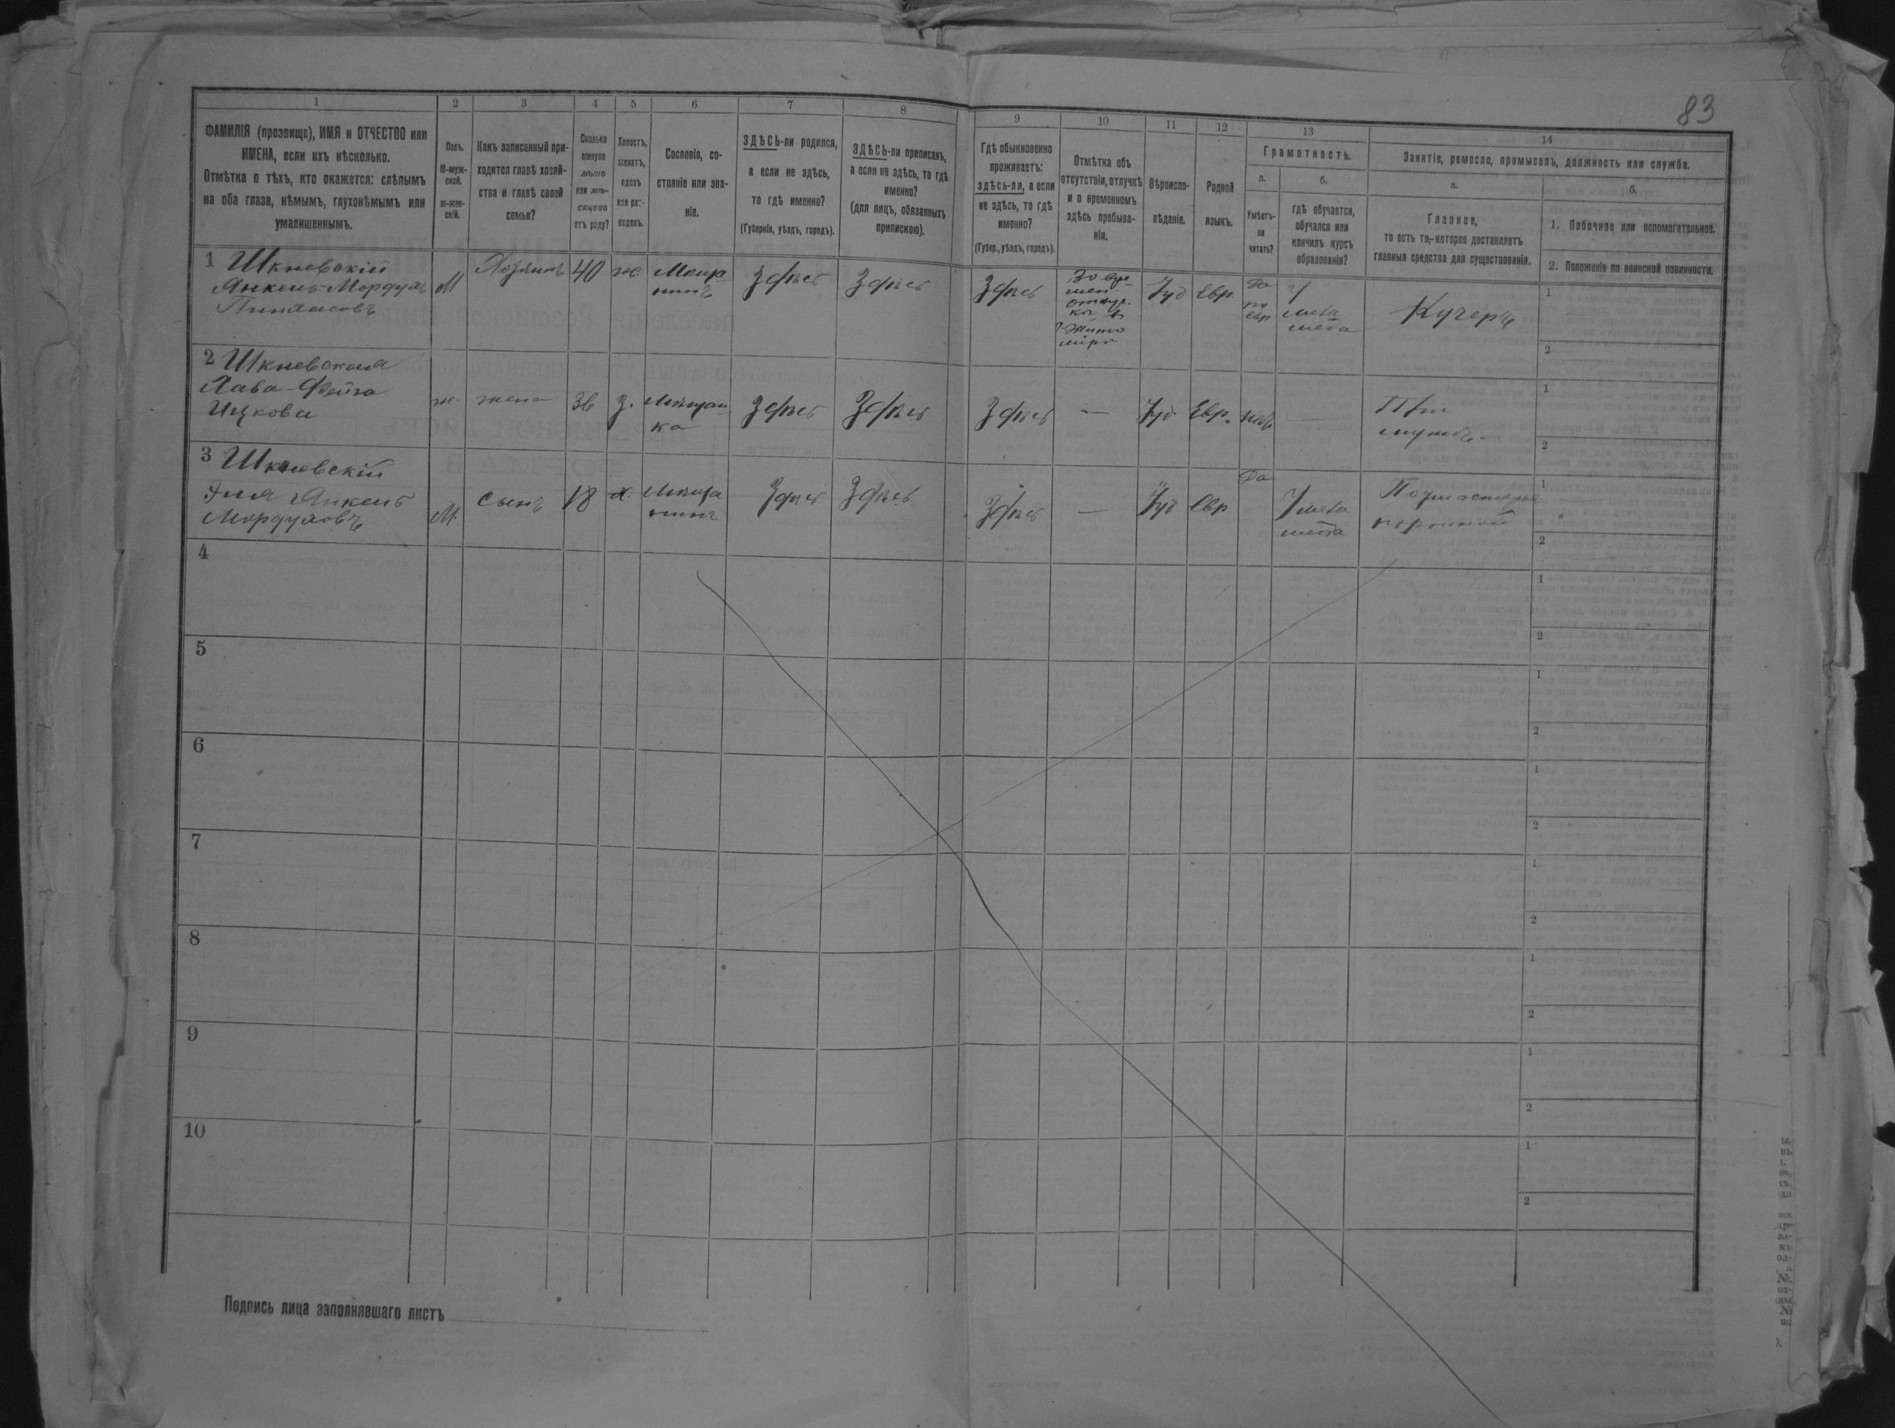 83
1
2
3
4
5
6
7
8
9
10
11
12
13
14
ФАМИЛІЯ (прозвище), ИМЯ и ОТЧЕСТВО или
ИМЕНА, если ихъ нѣсколько.
Отмѣтка о тѣхъ, кто окажется: слѣпымъ
на оба глаза, нѣмымъ, глухонѣмымъ или
умалишеннымъ.
Полъ.
М-муж-
ской.
ж-жен-
скій.
Какъ записанный при-
ходится главѣ хозяй-
ства и главѣ своей
семьи?
Сколько
минуло
лѣтъ
или мѣ-
сяцевъ
отъ роду?
Холостъ,
женатъ,
вдовъ
или раз-
веденъ.
Сословіе, со-
стояніе или зва-
ніе.
ЗДѢСЬ-ли родился,
а если не здѣсь,
то гдѣ именно?
(Губернія, уѣздъ, городъ).
ЗДѢСЬ-ли приписанъ,
а если не здѣсь, то гдѣ
именно?
(для лицъ, обязанныхъ
припискою).
Гдѣ обыкновенно
проживаетъ:
здѣсь-ли, а если
не здѣсь, то гдѣ
именно?
(Губер., уѣздъ, городъ).
Отмѣтка объ
отсутствіи, отлучкѣ
и о временномъ
здѣсь пребыва-
ніи.
Вѣроиспо-
вѣданіе.
Родной
языкъ.
Грамотность.
а.
Умѣетъ-
ли
читать?
б.
гдѣ обучается,
обучался или
кончилъ курсъ
образованія?
Занятіе, ремесло, промыселъ, должность или служба.
а.
Главное,
то есть то, которое доставляетъ
главныя средства для существованія.
б.
1. Побочное или вспомогательное.
2. Положеніе по воинской повинности.
1 Шкневскій
Янкель-Мордухъ
Пинхасовъ
М
Хозяинъ
40
ж
Мѣща
нинъ
Здѣсь
Здѣсь
Здѣсь
Іуд
Евр.
Да
по
евр
У
мела
меда
Кучеръ
1
2
2 Шкневская
Хава-Фейга
Ицкова
ж.
жена
36
з.
Мѣщан
ка
Здѣсь
Здѣсь
Здѣсь
—
Іуд
Евр.
нѣтъ
—
При
мужѣ.
1
2
3 Шкневскій
Эля Янкель
Мордуховъ
М.
Сынъ
18
х
Мѣща
нинъ
Здѣсь
Здѣсь
Здѣсь
—
Іуд
Евр
Да
У мела
меда
1
2
4
1
2
5
1
2
6
1
2
7
1
2
8
1
2
9
1
2
10
1
2
Подпись лица заполнявшаго листъ